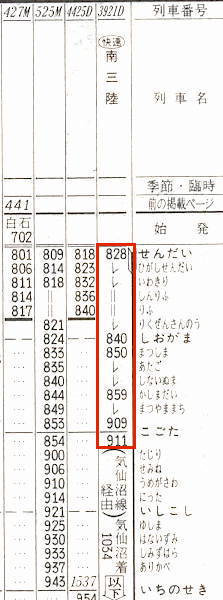 427M 525M 4425D 3921D 列車番号
快速
南三陸 列車名
季節・臨時
441 前の掲載ページ
白石 始発
702
801 809 818 828 せんだい
806 814 823 レ ひがしせんだい
811 818 832 レ いわきり
814 || 836 || しんりふ
817 || 840 || りふ
821 レ りくぜんさんのう
… 824 840 しおがま
… 833 850 まつしま
… 835 レ あたご
… 840 レ しないぬま
… 844 859 かしまだい
… 849 レ まつやままち
… 853 909 こごた
… 854 911
… 900 たじり
… 906 せみね
… 910 うめがさわ
… 914 にった
… 921 いしこし
… 925 ゆしま
… 930 はないずみ
… 933 しみずはら
… 937 ありかべ
… 943 1537 以下 いちのせき
954
(気仙沼線経由)
気仙沼着1034